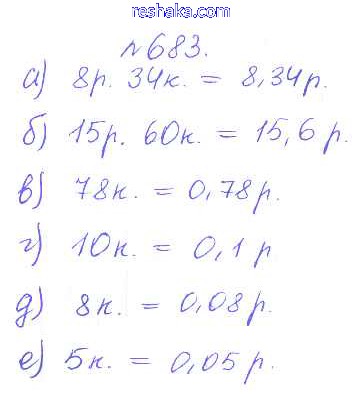 reshaka.com
№683.
а) 8р. 34к. = 8,34р.
б) 15р. 60к. = 15,6 р.
в) 78к. = 0,78р.
г) 10к. = 0,1 р
д) 8к. = 0,08 р.
е) 5к. = 0,05 р.